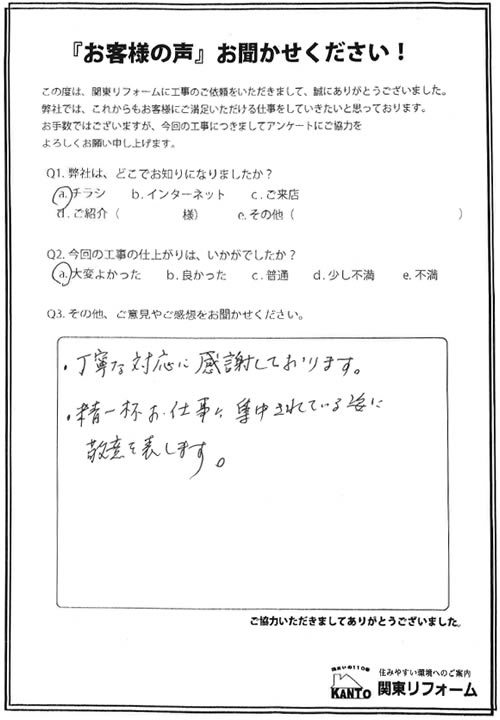 『お客様の声』お聞かせください！
この度は、関東リフォームに工事のご依頼をいただきまして、誠にありがとうございました。
弊社では、これからもお客様にご満足いただける仕事をしていきたいと思っております。
お手数ではございますが、今回の工事につきましてアンケートにご協力を
よろしくお願い申し上げます。
Q1. 弊社は、どこでお知りになりましたか？
a. チラシ b. インターネット c. ご来店
d. ご紹介（ 様） e. その他（ ）
Q2. 今回の工事の仕上がりは、いかがでしたか？
a. 大変よかった b. 良かった c. 普通 d. 少し不満 e. 不満
Q3. その他、ご意見やご感想をお聞かせください。
・丁寧な対応に感謝しております。
・精一杯お仕事に集中されている姿に
敬意を表します。
ご協力いただきましてありがとうございました。
住まいの110番
KANTO
住みやすい環境へのご案内
関東リフォーム